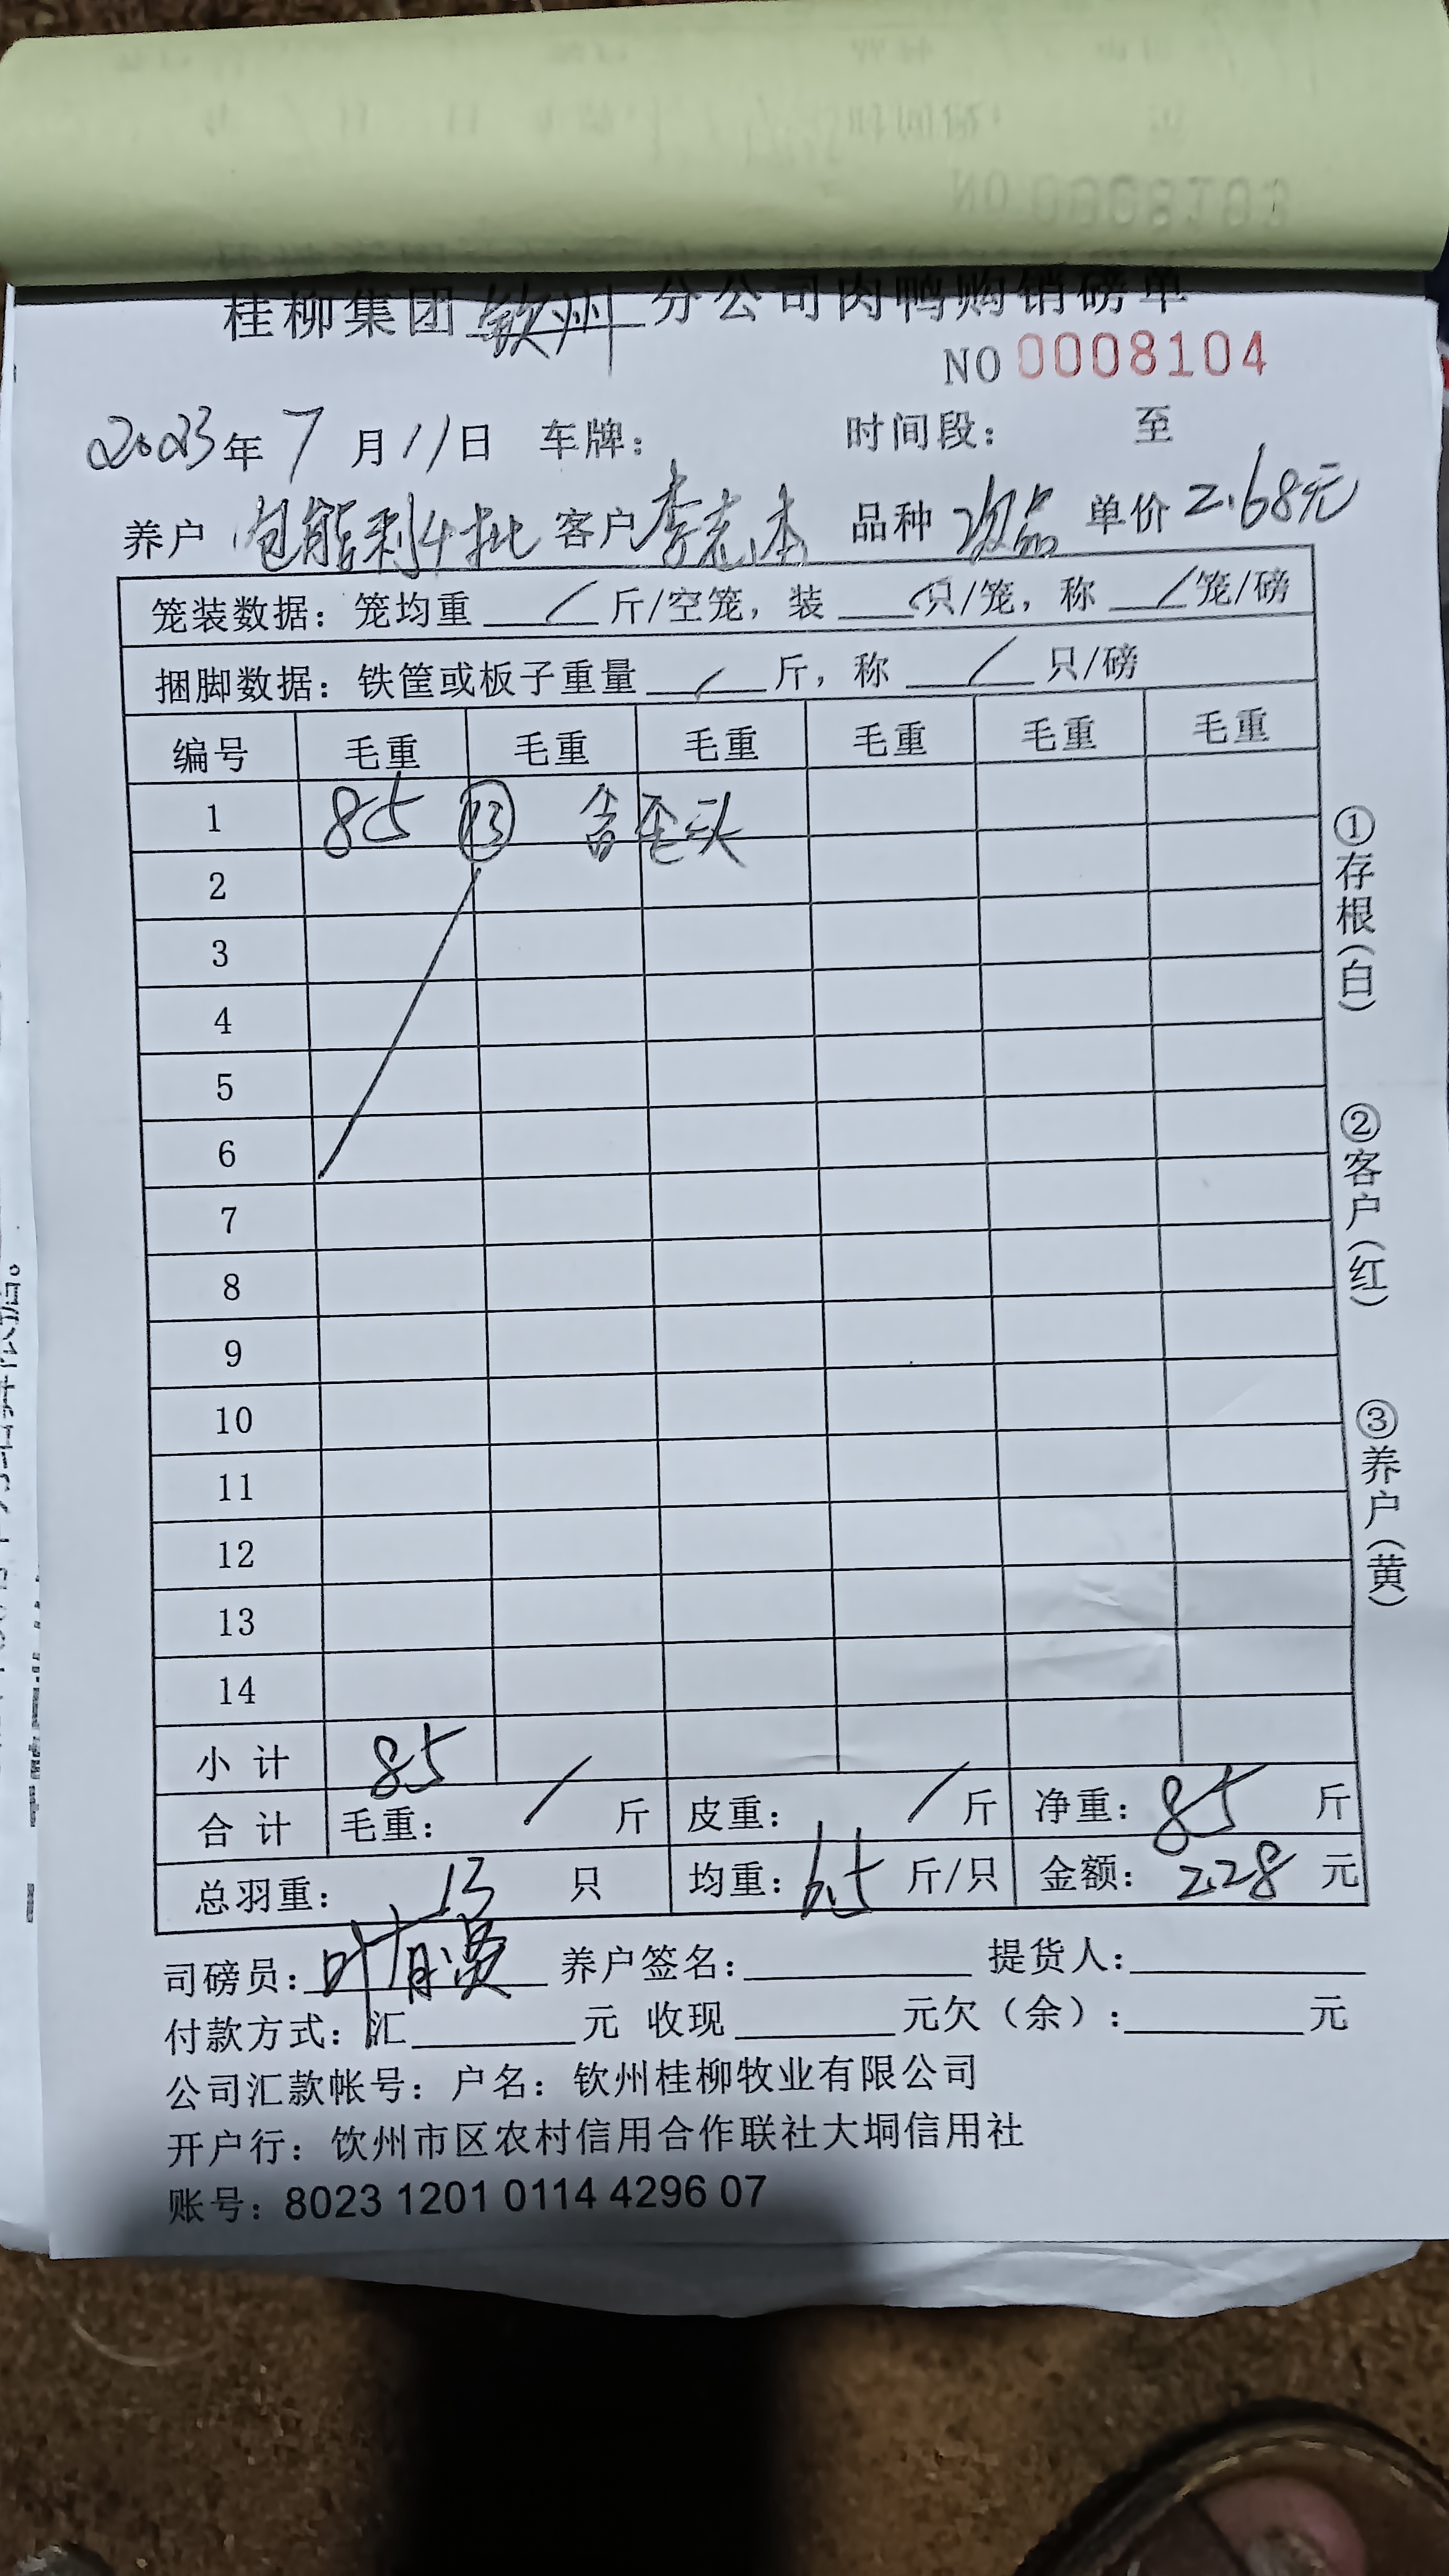 桂柳集团 钦州 分公司肉鸭购销磅单
NO 0008104
2023年 7 月 11 日 车牌: 时间段: 至
养户 包能剩4批 客户 李志本 品种 次品 单价 2.68元
笼装数据: 笼均重 / 斤/空笼, 装 / 只/笼, 称 / 笼/磅
捆脚数据: 铁筐或板子重量 / 斤, 称 / 只/磅
编号 毛重 毛重 毛重 毛重 毛重 毛重
1 85 ⑬ 含歪头
2
3
4
5
6
7
8
9
10
11
12
13
14
小计 85
合计 毛重: / 斤 皮重: / 斤 净重: 85 斤
总羽重: 13 只 均重: 6.5 斤/只 金额: 228 元
司磅员: 叶 养户签名: 提货人:
付款方式: 汇 元 收现 元欠(余): 元
公司汇款帐号: 户名: 钦州桂柳牧业有限公司
开户行: 钦州市区农村信用合作联社大垌信用社
账号: 8023 1201 0114 4296 07
①存根(白)
②客户(红)
③养户(黄)